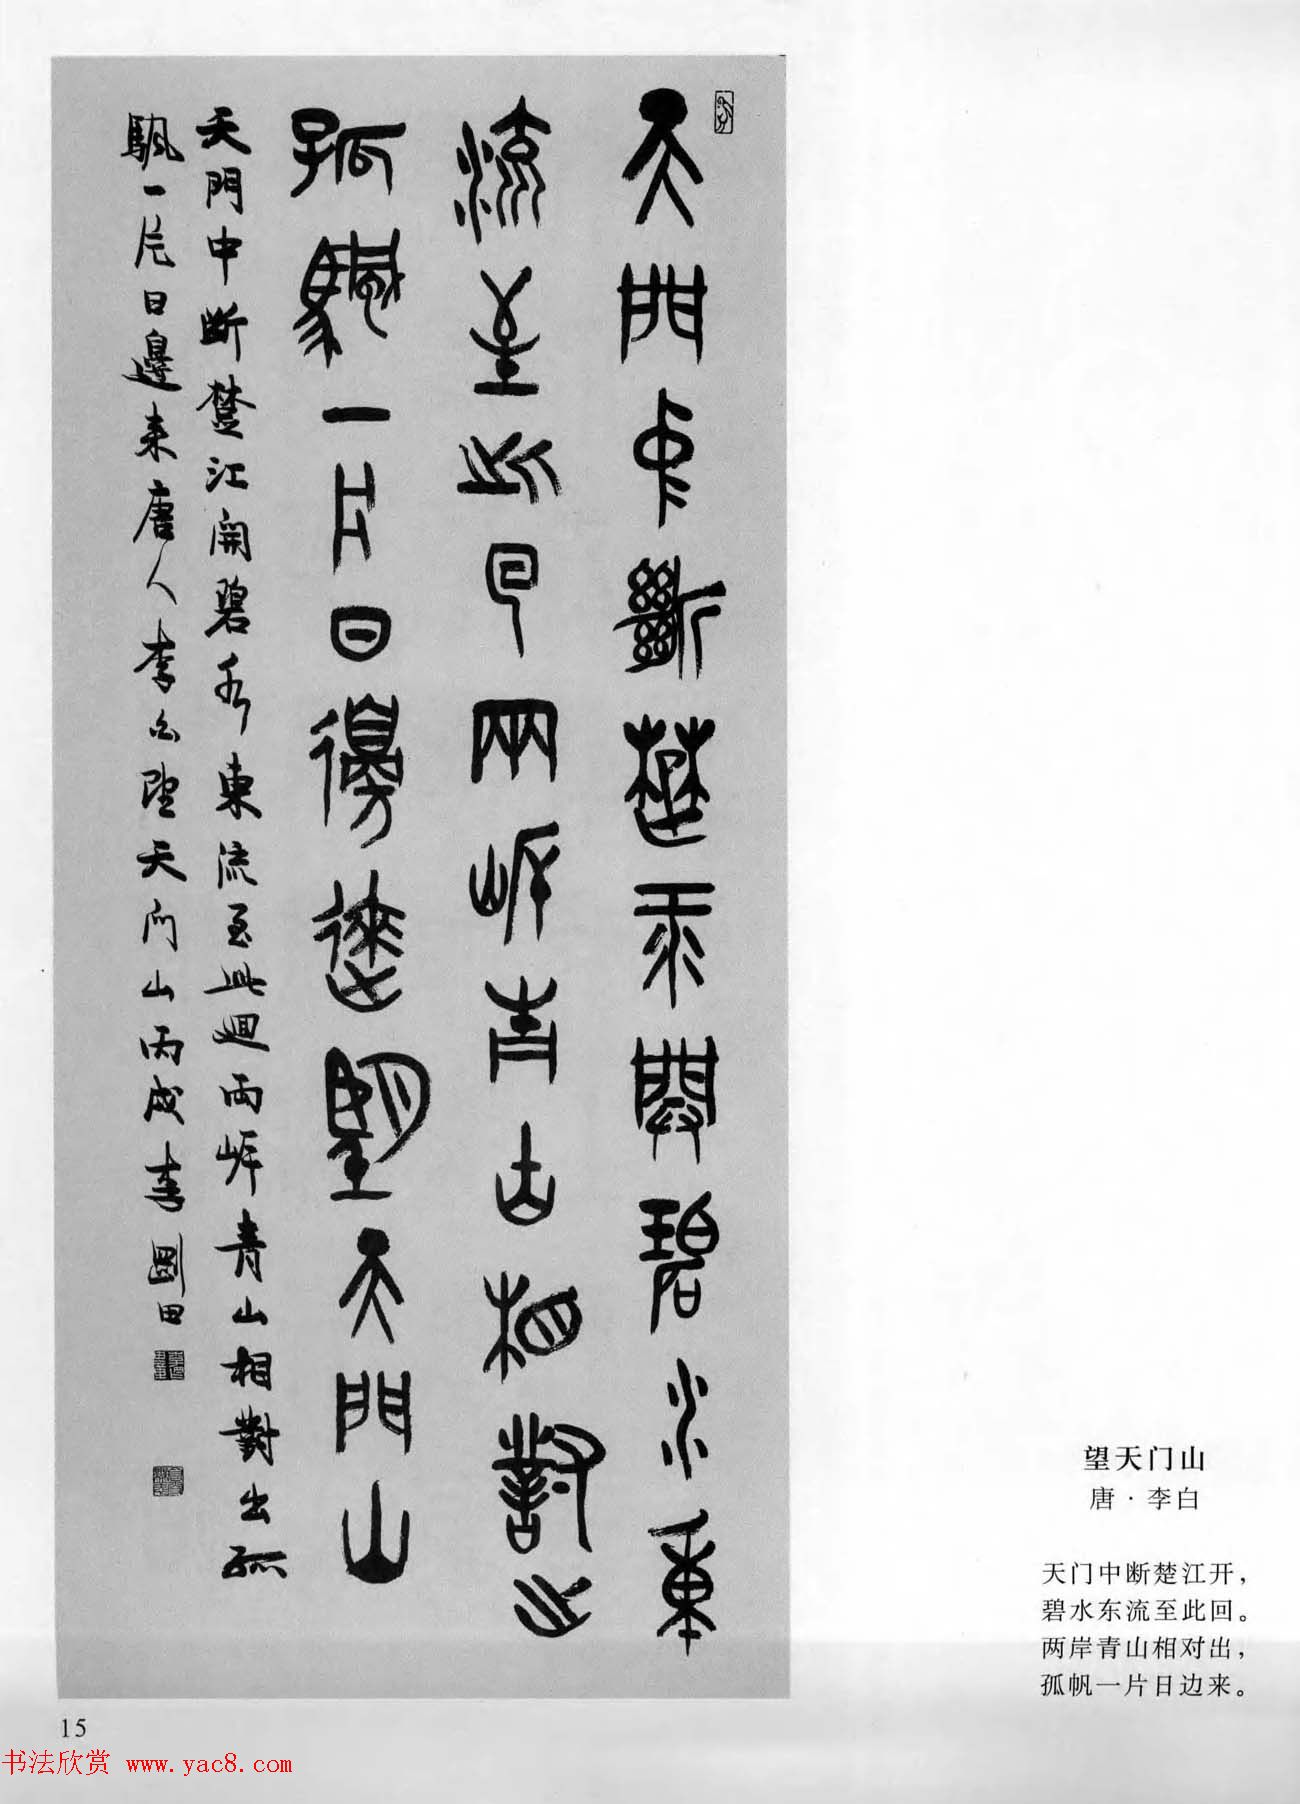 天門中斷楚江開碧水東
流至此回兩岸青山相對出
孤颿一片日邊來望天門山
天門中斷楚江開碧水東流至此迴兩岸青山相對出孤
颿一片日邊来唐人李白望天门山丙戌李剛田
望天门山
唐·李白
天门中断楚江开，
碧水东流至此回。
两岸青山相对出，
孤帆一片日边来。
15
书法欣赏 www.yac8.com